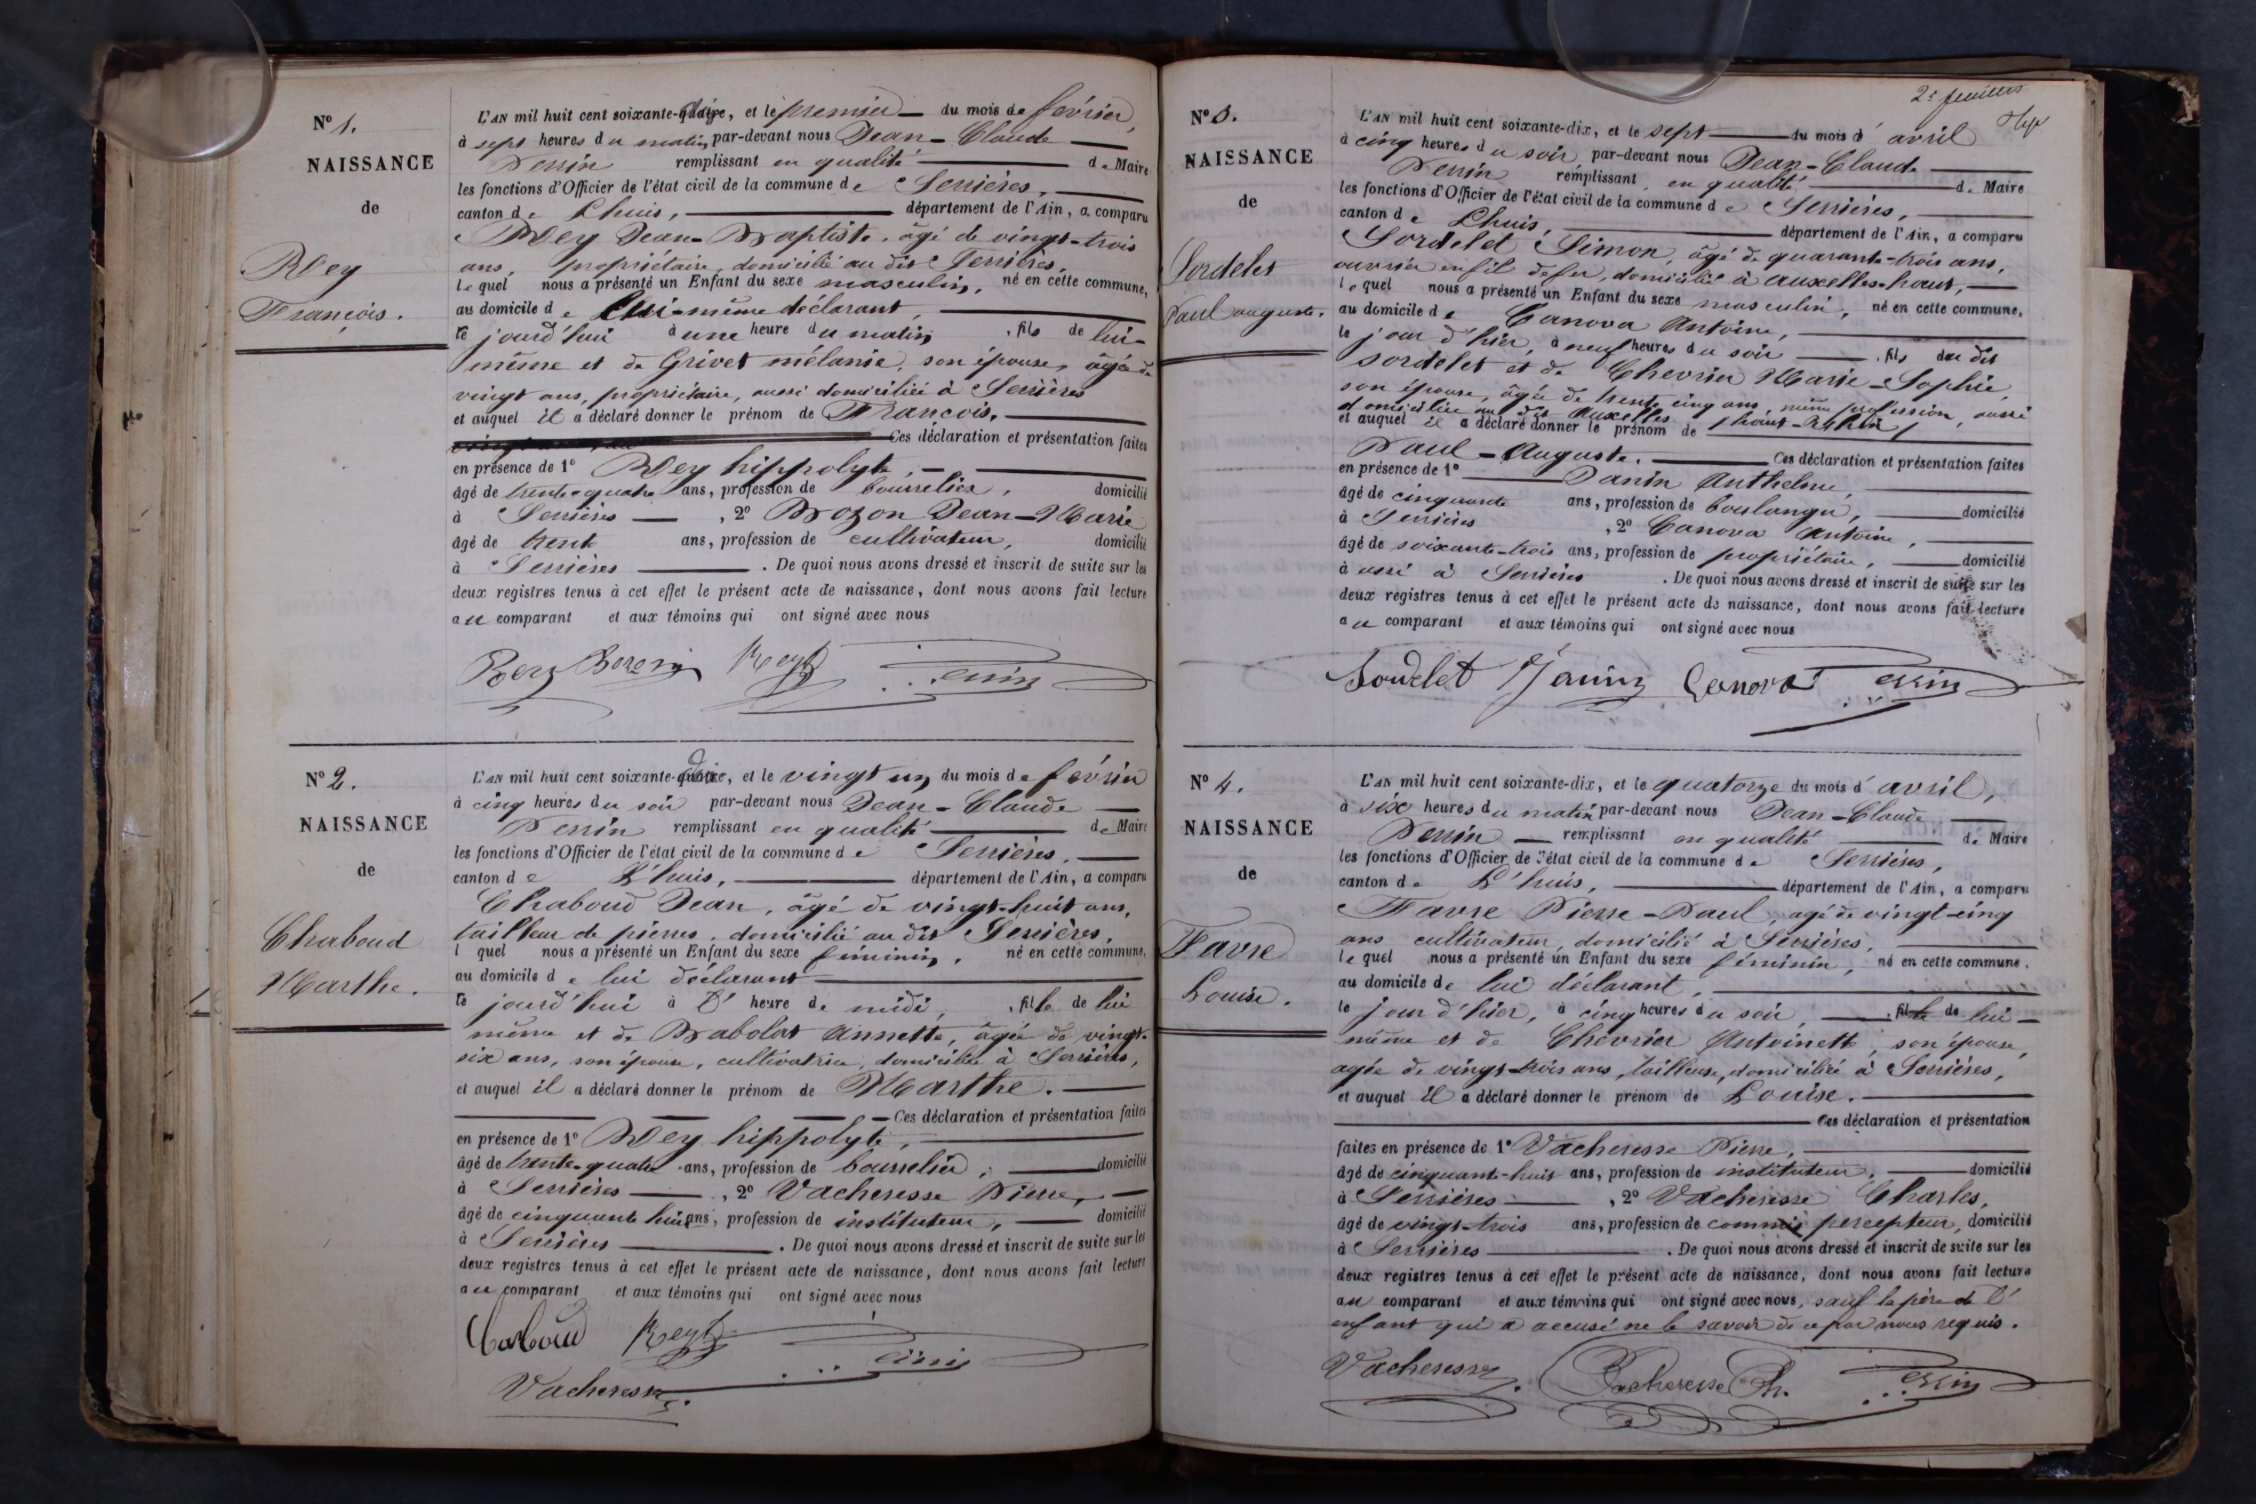 N° 1.
NAISSANCE
de
Rey
François.
L'AN mil huit cent soixante-dix, et le premier du mois de février,
à sept heures du matin, par-devant nous Jean-Claude
Perrin remplissant en qualité de Maire
les fonctions d'Officier de l'état civil de la commune de Serrières,
canton de Lhuis, département de l'Ain, a comparu
Rey Jean-Baptiste, âgé de vingt-trois
ans, propriétaire, domicilié au dit Serrières,
lequel nous a présenté un Enfant du sexe masculin, né en cette commune,
au domicile de lui-même déclarant,
le jourd'hui à une heure du matin, fils de lui-
même et de Grivet mélanie, son épouse, âgée de
vingt ans, propriétaire, aussi domiciliée à Serrières
et auquel il a déclaré donner le prénom de François.
Ces déclaration et présentation faites
en présence de 1° Rey hippolyte,
âgé de trente-quatre ans, profession de bourrelier, domicilié
à Serrières, 2° Bozon Jean-Marie
âgé de trente ans, profession de cultivateur, domicilié
à Serrières. De quoi nous avons dressé et inscrit de suite sur les
deux registres tenus à cet effet le présent acte de naissance, dont nous avons fait lecture
au comparant et aux témoins qui ont signé avec nous
Rey Bozon Rey Perrin
N° 2.
NAISSANCE
de
Chaboud
Marthe.
L'AN mil huit cent soixante-dix, et le vingt un du mois de février
à cinq heures du soir par-devant nous Jean-Claude
Perrin remplissant en qualité de Maire
les fonctions d'Officier de l'état civil de la commune de Serrières,
canton de L'huis, département de l'Ain, a comparu
Chaboud Jean, âgé de vingt-huit ans,
tailleur de pierres, domicilié au dit Serrières,
l quel nous a présenté un Enfant du sexe féminin, né en cette commune,
au domicile de lui déclarant
le jourd'hui à l' heure de midi, fille de lui
même et de Babolat Annette, âgée de vingt-
six ans, son épouse, cultivatrice, domiciliée à Serrières,
et auquel il a déclaré donner le prénom de Marthe.
Ces déclaration et présentation faites
en présence de 1° Rey hippolyte,
âgé de trente-quatre ans, profession de bourrelier, domicilié
à Serrières, 2° Vacheresse Pierre,
âgé de cinquante huit ans, profession de instituteur, domicilié
à Serrières. De quoi nous avons dressé et inscrit de suite sur les
deux registres tenus à cet effet le présent acte de naissance, dont nous avons fait lecture
au comparant et aux témoins qui ont signé avec nous
Chaboud Rey Perrin
Vacheresse
2e feuillet
N° 3.
NAISSANCE
de
Sordelet
Paul auguste.
L'AN mil huit cent soixante-dix, et le sept du mois d' avril
à cinq heures du soir, par-devant nous Jean-Claude
Perrin remplissant en qualité de Maire
les fonctions d'Officier de l'état civil de la commune de Serrières,
canton de Lhuis, département de l'Ain, a comparu
Sordelet Simon, âgé de quarante-trois ans,
ouvrier en fil de fer, domicilié à auxelles-haut,
lequel nous a présenté un Enfant du sexe masculin, né en cette commune,
au domicile de Canova Antoine,
le jour d'hier, à neuf heures du soir, fils du dit
Sordelet et de Chevrier Marie-Sophie,
son épouse, âgée de trente cinq ans, même profession, aussi
domiciliée au dit Auxelles
et auquel il a déclaré donner le prénom de (haut-Rhin)
Paul-Auguste. Ces déclaration et présentation faites
en présence de 1° Janin Anthelme,
âgé de cinquante ans, profession de boulanger, domicilié
à Serrières, 2° Canova Antoine,
âgé de soixante-trois ans, profession de propriétaire, domicilié
aussi à Serrières. De quoi nous avons dressé et inscrit de suite sur les
deux registres tenus à cet effet le présent acte de naissance, dont nous avons fait lecture
au comparant et aux témoins qui ont signé avec nous
Sordelet Janin Canova Perrin
N° 4.
NAISSANCE
de
Favre
Louise.
L'AN mil huit cent soixante-dix, et le quatorze du mois d' avril,
à six heures du matin par-devant nous Jean-Claude
Perrin remplissant en qualité de Maire
les fonctions d'Officier de l'état civil de la commune de Serrières,
canton de L'huis, département de l'Ain, a comparu
Favre Pierre-Paul, âgé de vingt-cinq
ans cultivateur, domicilié à Serrières,
lequel nous a présenté un Enfant du sexe féminin, né en cette commune,
au domicile de lui déclarant,
le jour d'hier, à cinq heures du soir, fille de lui-
même et de Chevrier Antoinette, son épouse,
agée de vingt-trois ans, tailleuse, domiciliée à Serrières,
et auquel il a déclaré donner le prénom de Louise.
Ces déclaration et présentation
faites en présence de 1° Vacheresse Pierre,
âgé de cinquante-huit ans, profession de instituteur, domicilié
à Serrières, 2° Vacheresse Charles,
âgé de vingt-trois ans, profession de commis percepteur, domicilié
à Serrières. De quoi nous avons dressé et inscrit de suite sur les
deux registres tenus à cet effet le présent acte de naissance, dont nous avons fait lecture
au comparant et aux témoins qui ont signé avec nous, sauf le père de l'
enfant qui a accusé ne le savoir de ce par nous requis.
Vacheresse Vacheresse Ch. Perrin